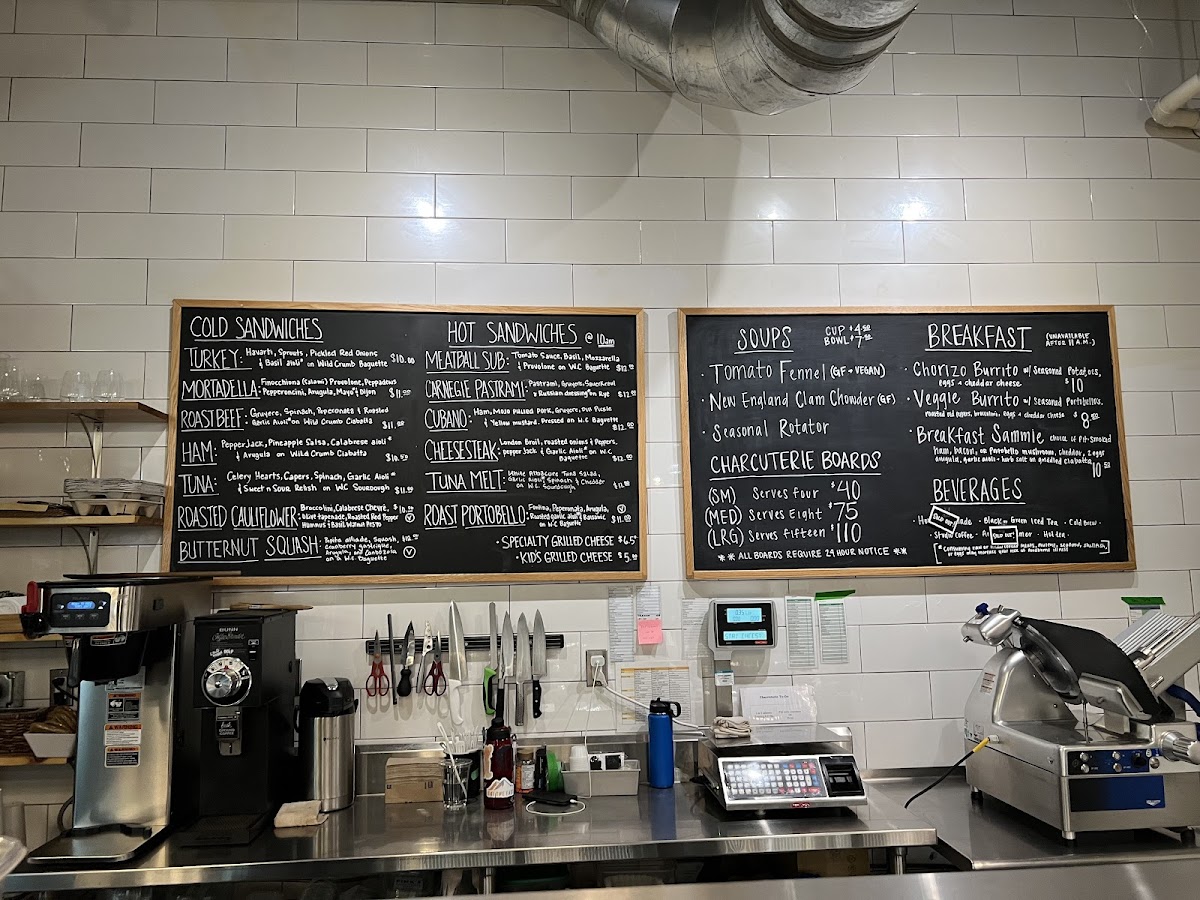 COLD SANDWICHES
TURKEY: Havarti, Sprouts, Pickled Red Onions
& Basil aioli* on Wild Crumb Baguette $10.00
MORTADELLA: Finocchiona (salami) Provolone, Peppadews
Pepperoncini, Arugula, Mayo* & Dijon $11.00
ROAST BEEF: Gruyere, Spinach, Peperonata & Roasted
Garlic Aioli* on Wild Crumb Ciabatta $11.00
HAM: Pepper Jack, Pineapple Salsa, Calabrese aioli*
& Arugula on Wild Crumb Ciabatta $10.50
TUNA: Celery Hearts, Capers, Spinach, Garlic Aioli*
& Sweet n Sour Relish on W.C Sourdough $11.00
ROASTED CAULIFLOWER: Broccolini, Calabrese Chevre, $10.00
Olive tapenade, Roasted Red Pepper
Hummus & Basil Walnut Pesto V
BUTTERNUT SQUASH: Squash, $12.00
cranberry gastrique,
Arugula, and Cambozola
on W.C. Baguette V
HOT SANDWICHES @ 10am
MEATBALL SUB: Tomato Sauce, Basil, Mozzarella
& Provolone on W.C Baguette $12.00
CARNEGIE PASTRAMI: Pastrami, Gruyere, Sauerkraut
& Russian dressing* on Rye $12.00
CUBANO: Ham, Mojo Pulled Pork, Gruyere, Dill Pickle
& Yellow mustard, Pressed on W.C. Baguette $12.00
CHEESESTEAK: London Broil, roasted onions & Peppers,
pepper Jack & Garlic Aioli* on W.C
Baguette $12.00
TUNA MELT: White Albacore Tuna Salad,
Garlic Aioli*, Spinach & Cheddar
on W.C. Sourdough $11.00
ROAST PORTOBELLO: Fontina, Peperonata, Arugula, V
Roasted garlic aioli* & Balsamic
on W.C Baguette $11.00
• SPECIALTY GRILLED CHEESE $6.5
• KIDS GRILLED CHEESE $5.00
SOUPS CUP $4.50
BOWL $7.50
• Tomato Fennel (GF + VEGAN)
• New England Clam Chowder (GF)
• Seasonal Rotator
CHARCUTERIE BOARDS
(SM) Serves four $40
(MED) Serves Eight $75
(LRG) Serves fifteen $110
** ALL BOARDS REQUIRE 24 HOUR NOTICE **
BREAKFAST (UNAVAILABLE
AFTER 11 A.M.)
• Chorizo Burrito w/ Seasoned Potatoes,
eggs + cheddar cheese $10
• Veggie Burrito w/ Seasoned Portobellos,
roasted red peppers, broccolini, eggs + cheddar cheese $8.50
• Breakfast Sammie choice of Pit-smoked
ham, bacon, or Portobello mushroom, cheddar, 2 eggs
arugula, garlic aioli + herb salt on griddled ciabatta 10.50
BEVERAGES
SOLD OUT
• Black or Green Iced Tea • Cold Brew •
• Studio Coffee • SOLD OUT • Hot tea •
BUNN